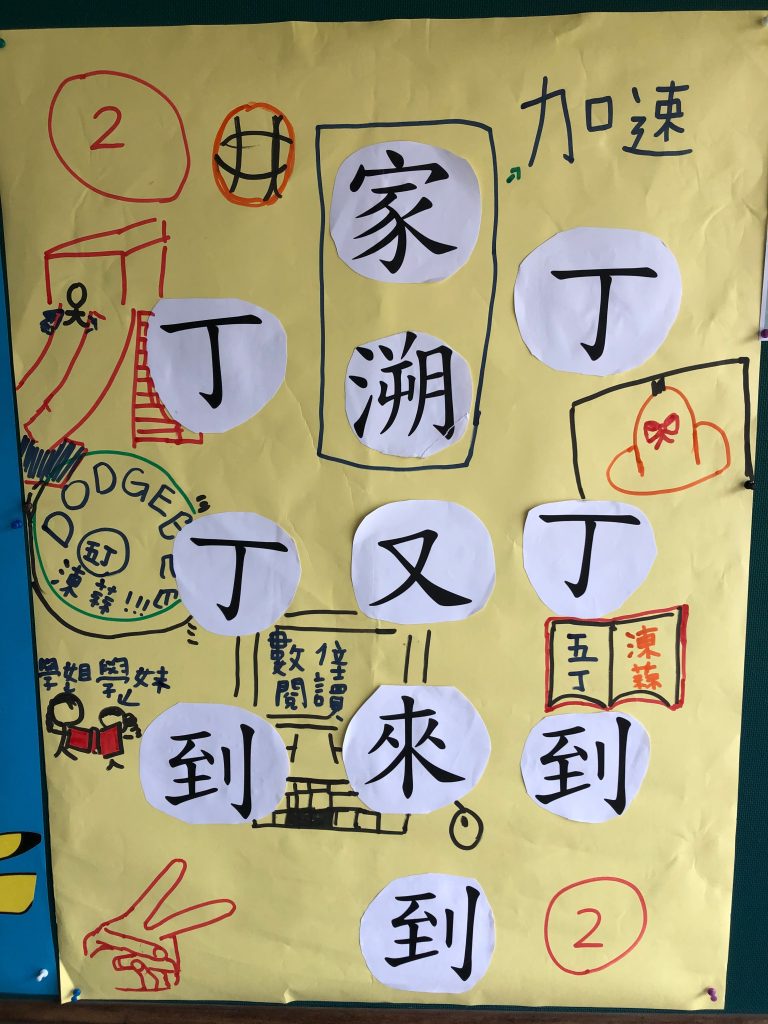 2
加速
家
丁
丁
溯
DODGEBEE
五丁
涷蒜!!!
丁又丁
數位
閱讀
五丁
涷蒜
學姐學妹
到來到
到
2